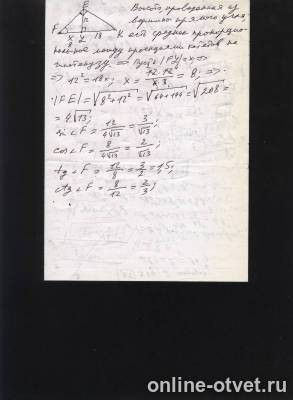 E
F x y 18 K
Высота, проведенная из
вершины прямого угла
есть среднее пропорцио-
нальное между проекциями катетов на
гипотенузу ⇒ Пусть |FY|=x ⇒
⇒ 12² = 18x; x = 12·12 / 18 = 8; ⇒
|FE| = √8²+12² = √64+144 = √208 =
= 4√13;
sin∠F = 12/4√13 = 3/√13;
cos∠F = 8/4√13 = 2/√13;
tg∠F = 12/8 = 3/2 = 1,5;
ctg∠F = 8/12 = 2/3;
online-otvet.ru